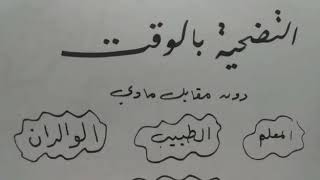 التضحية بالوقت
دون مقابل مادي
المعلم الطبيب الوالدان